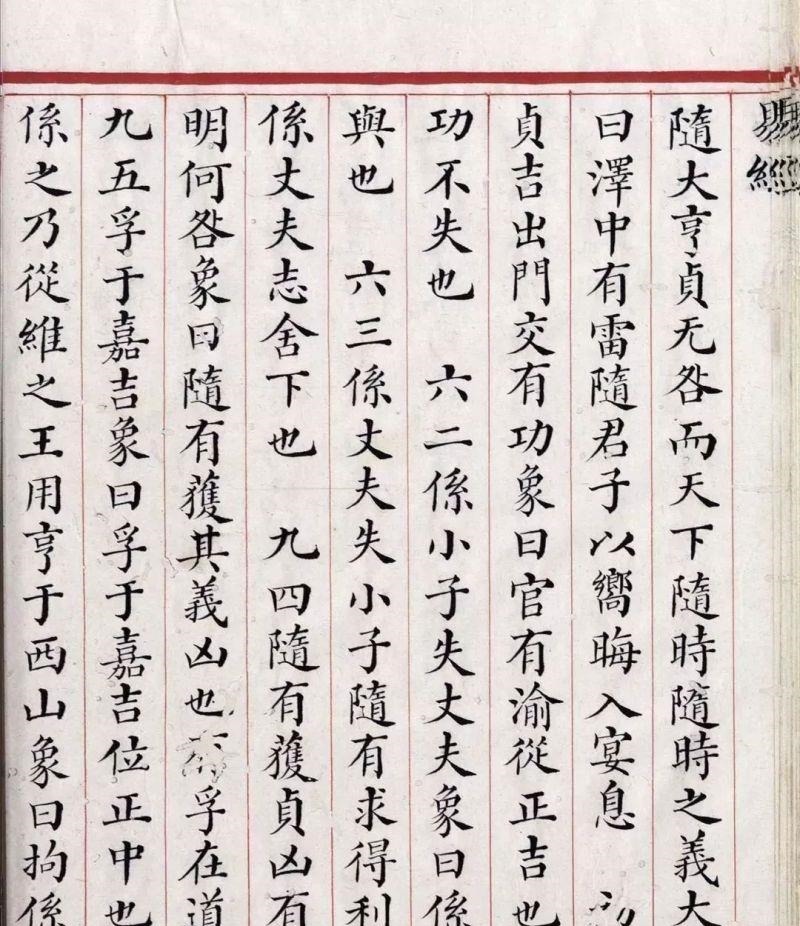 易經
隨大亨貞无咎而天下隨時隨時之義大
曰澤中有雷隨君子以嚮晦入宴息
貞吉出門交有功象曰官有渝從正吉也
功不失也 六二係小子失丈夫象曰係
與也 六三係丈夫失小子隨有求得利
係丈夫志舍下也 九四隨有獲貞凶有
明何咎象曰隨有獲其義凶也 孚在道
九五孚于嘉吉象曰孚于嘉吉位正中也
係之乃從維之王用亨于西山象曰拘係